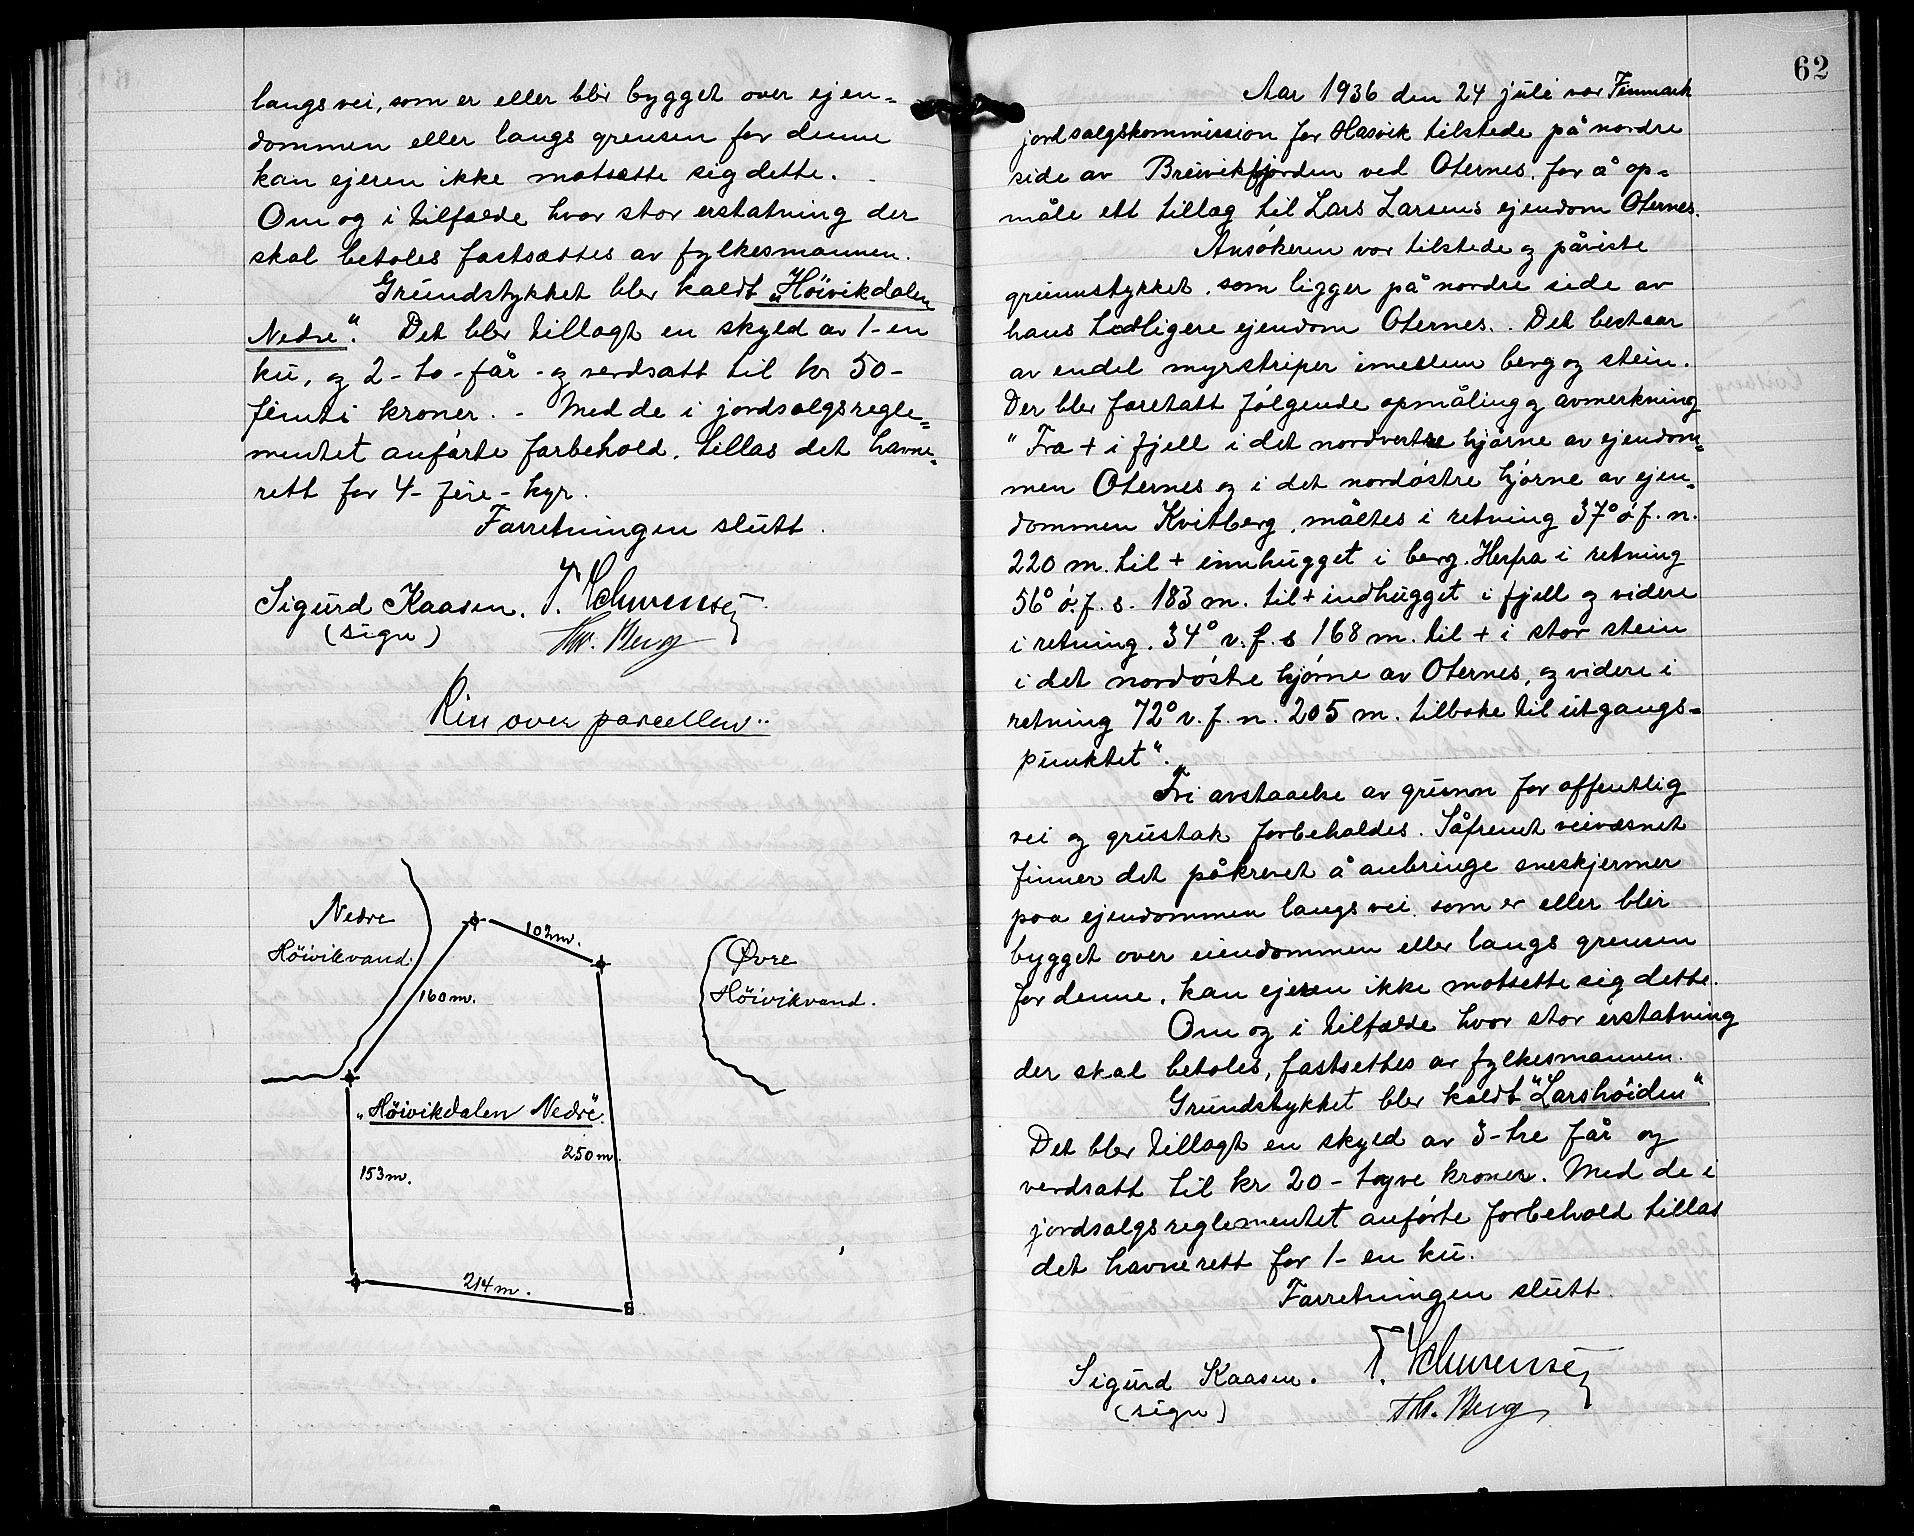 langs vei, som er eller blir bygget over ejen=
dommen eller langs grensen for denne
kan ejeren ikke motsætte sig dette.
Om og i tilfælde hvor stor erstatning der
skal betales fastsættes av fylkesmannen.
Grundstykket blev kaldt „Höivikdalen
Nedre". Det blev tillagt en skyld av 1-en
ku, og 2-to-får - og verdsatt til kr 50-
femti kroner. - Med de i jordsalgsregle=
mentet anførte forbehold, tillas det havne=
rett for 4-fire-kyr.
Forretningen slutt.
Sigurd Kaasen.
(sign)
Riss over parcellen"
Nedre
Höivikvand
103m.
Øvre
Höivikvand.
160m.
„Höivikdalen Nedre".
250m.
153m.
214m.
62
Aar 1936 den 24 juli var Finmark
jordsalgskommission for Hasvik tilstede på nordre
side av Breivikfjorden ved Oternes, for å op=
måle ett tillæg til Lars Larsens ejendom Oternes.
Ansøkeren var tilstede og påviste
grunnstykket, som ligger på nordre side av
hans tidligere ejendom Oternes. Det bestaar
av endel myrstriper imellem berg og stein.
Der blev foretatt følgende opmåling og avmerkning
"Fra + i fjell i det nordvestre hjørne av ejendom=
men Oternes og i det nordøstre hjørne av ejen=
dommen Kvitberg, måltes i retning 37° ø.f.n.
220 m. til + innhugget i berg. Herfra i retning
56° ø.f.s. 183 m. til + indhugget i fjell og videre
i retning. 34° v.f.s 168 m. til + i stor stein
i det nordøstre hjørne av Oternes, og videre i
retning 72° v.f.n. 205 m. tilbake til utgangs=
punktet".
Fri avstaaelse av grunn for offentlig
vei og grustak forbeholdes. Såfremt veivæsnet
finner det påkrevet å anbringe sneskjermer
paa ejendommen langs vei som er eller blir
bygget over eiendommen eller langs grensen
for denne, kan ejeren ikke motsette sig dette.
Om og i tilfælde hvor stor erstatning
der skal betales, fastsettes av fylkesmannen.
Grundstykket blev kaldt "Larshöiden"
Det blev tillagt en skyld av 3-tre får og
verdsatt til kr 20-tyve kroner. Med de i
jordsalgsreglementet anførte forbehold tillas
det havnerett for 1-en ku.
Forretningen slutt.
Sigurd Kaasen.
(sign)